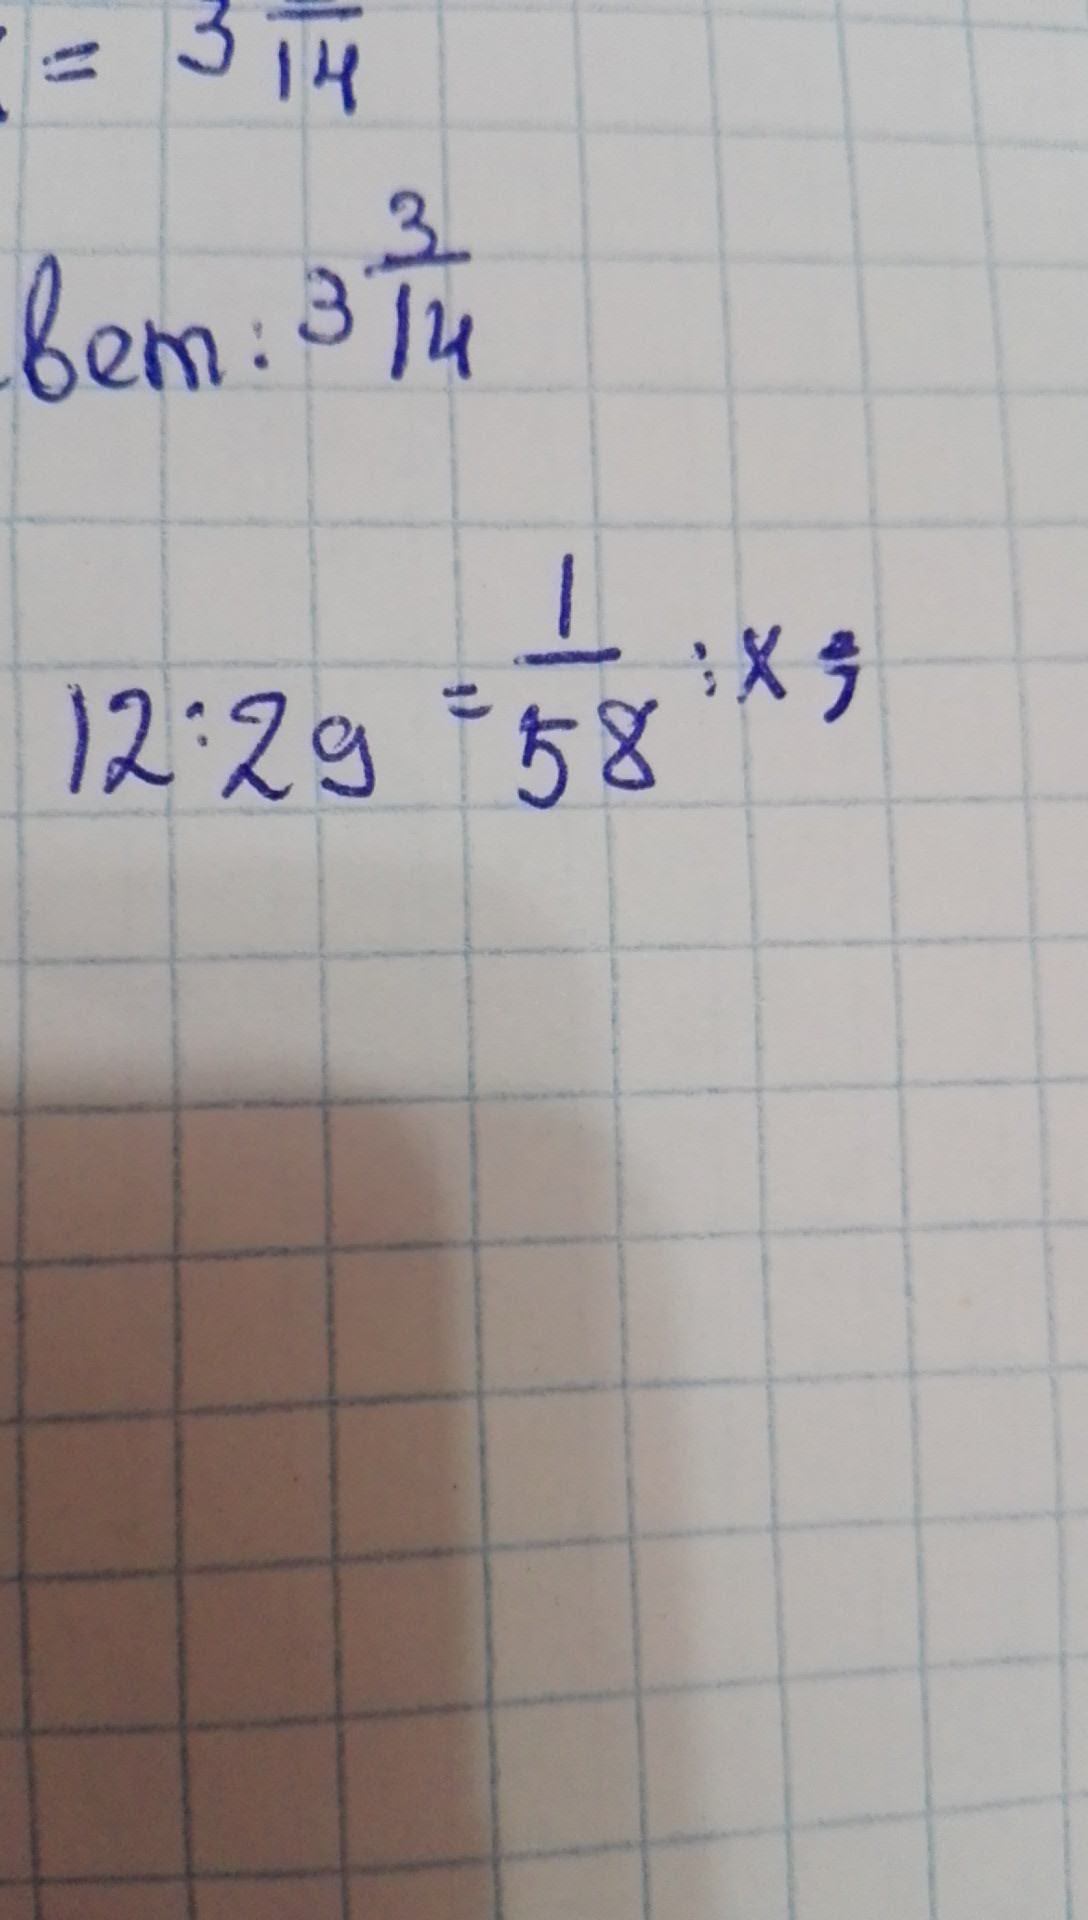 = 3 /14
вет: 3 3/14
12:29 = 1/58 : x;